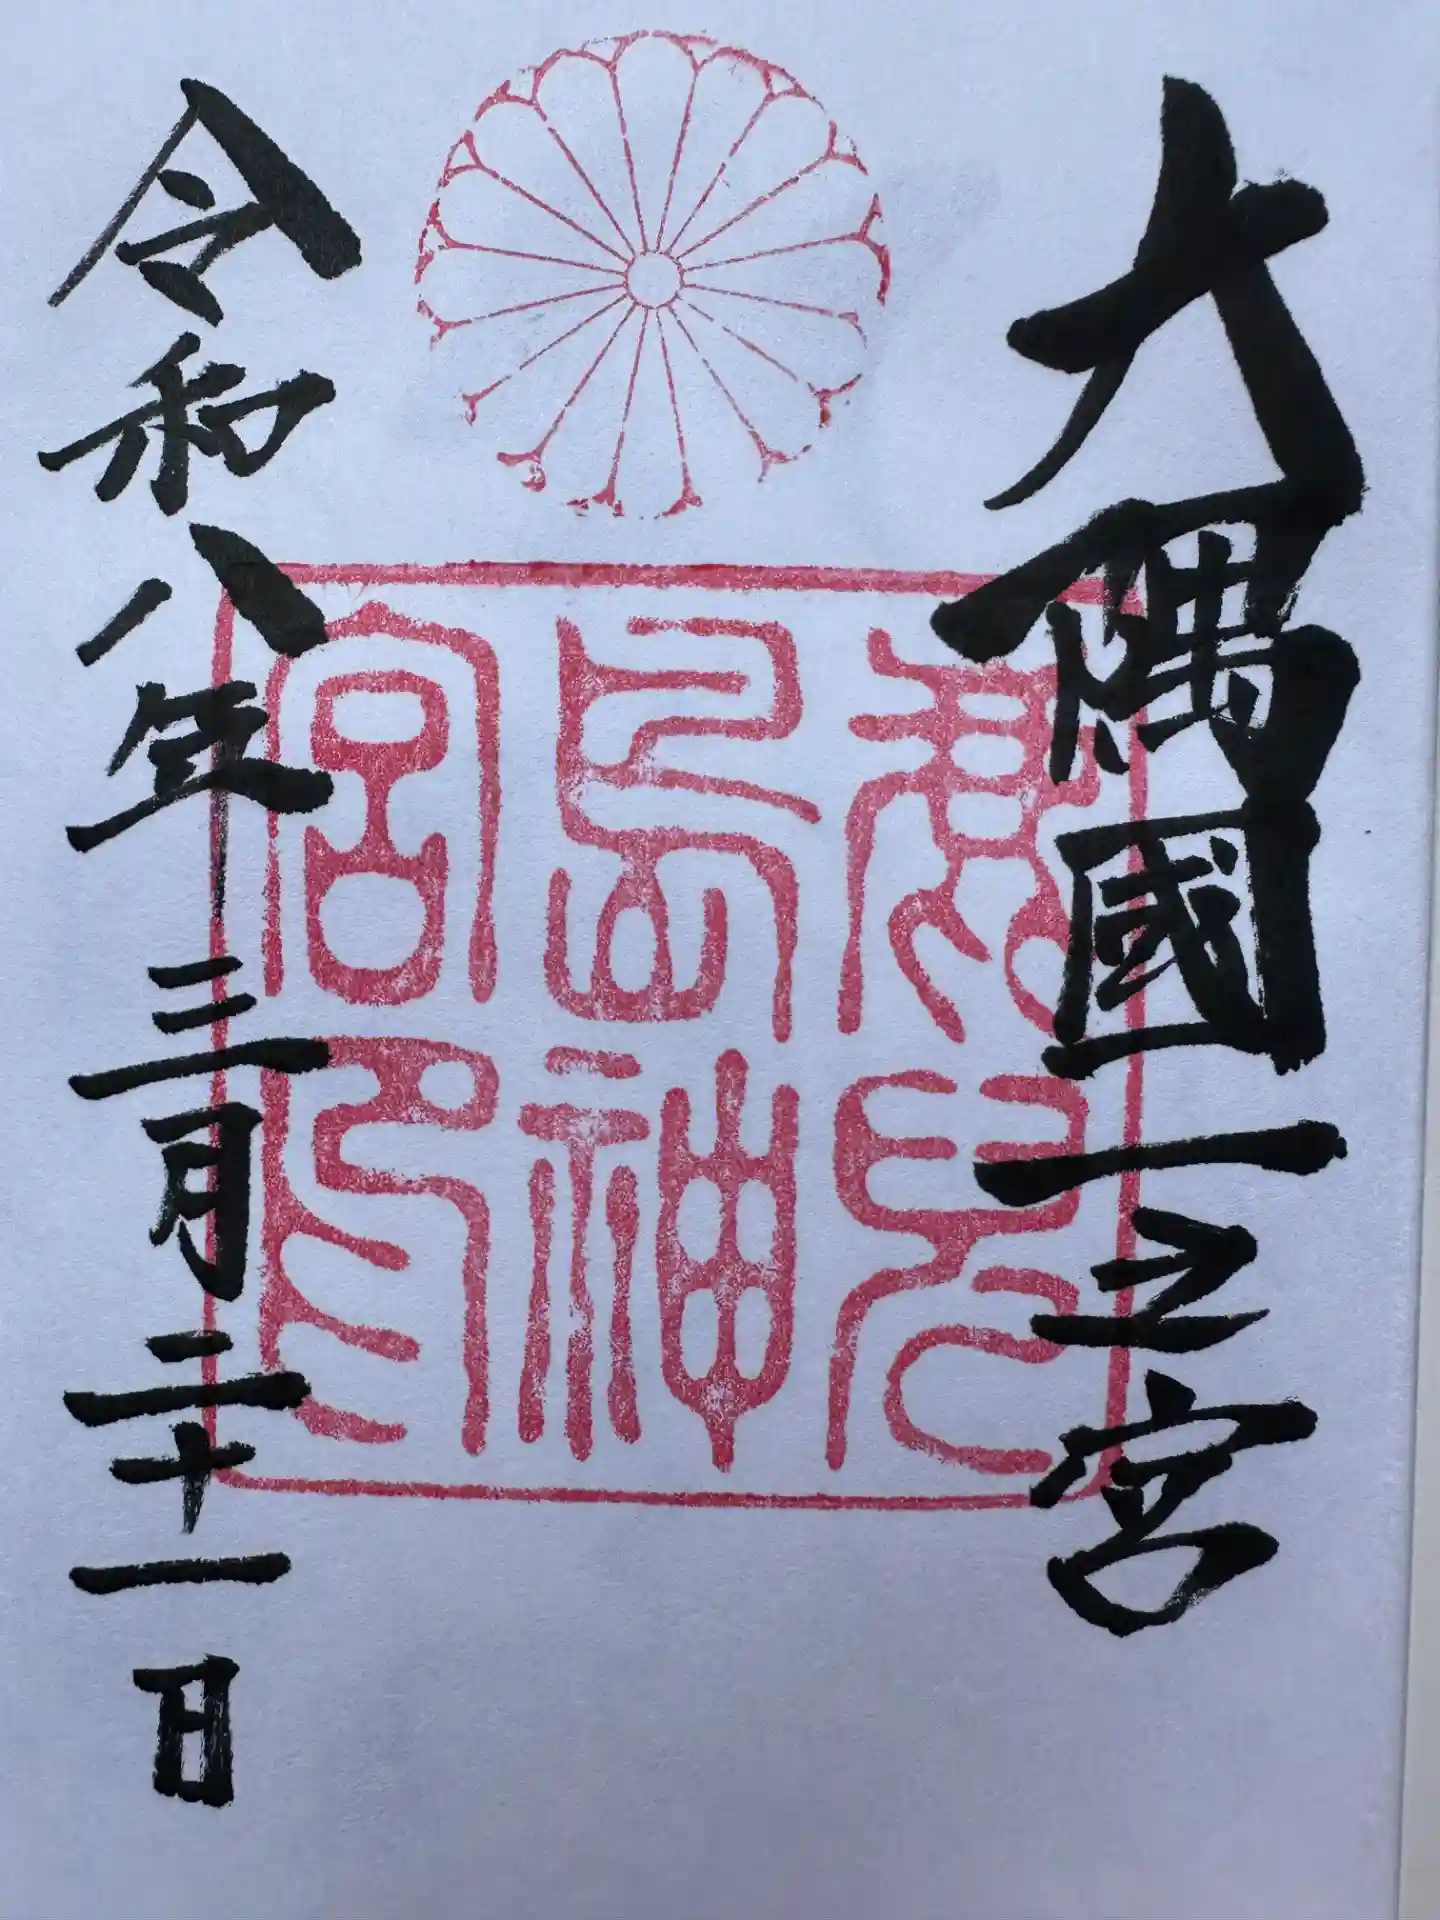 大隅國一之宮
鹿兒
島神
宮印
令和八年三月二十一日